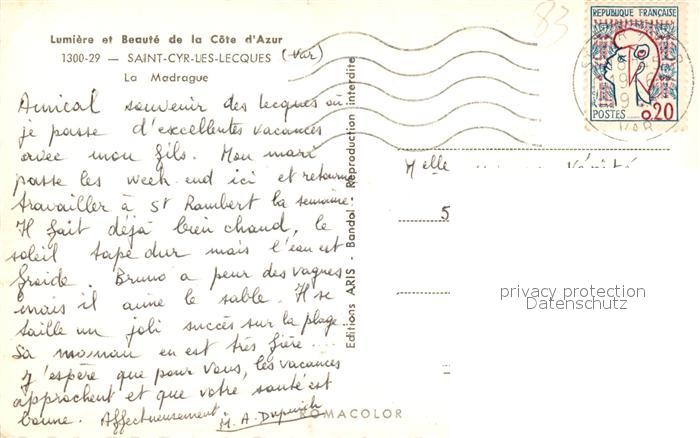 Lumière et Beauté de la Côte d'Azur
1300-29 — SAINT-CYR-LES-LECQUES (Var)
La Madrague
Amical souvenir des lecques où
je passe d'excellentes vacances
avec mon fils. Mon mari
passe les week-end ici et retourne
travailler à St Rambert la semaine.
Il fait déjà bien chaud, le
soleil tape dur mais l'eau est
froide. Bruno a peur des vagues
mais il aime le sable. Il se
taille un joli succès sur la plage
Sa maman en est très fière....
J'espère que pour vous, les vacances
approchent et que votre santé est
bonne. Affectueusement.
M. A.
ROMACOLOR
Editions ARIS - Bandol - Reproduction interdite
83
REPUBLIQUE FRANÇAISE
POSTES 0,20
VAR
Melle
5
privacy protection
Datenschutz